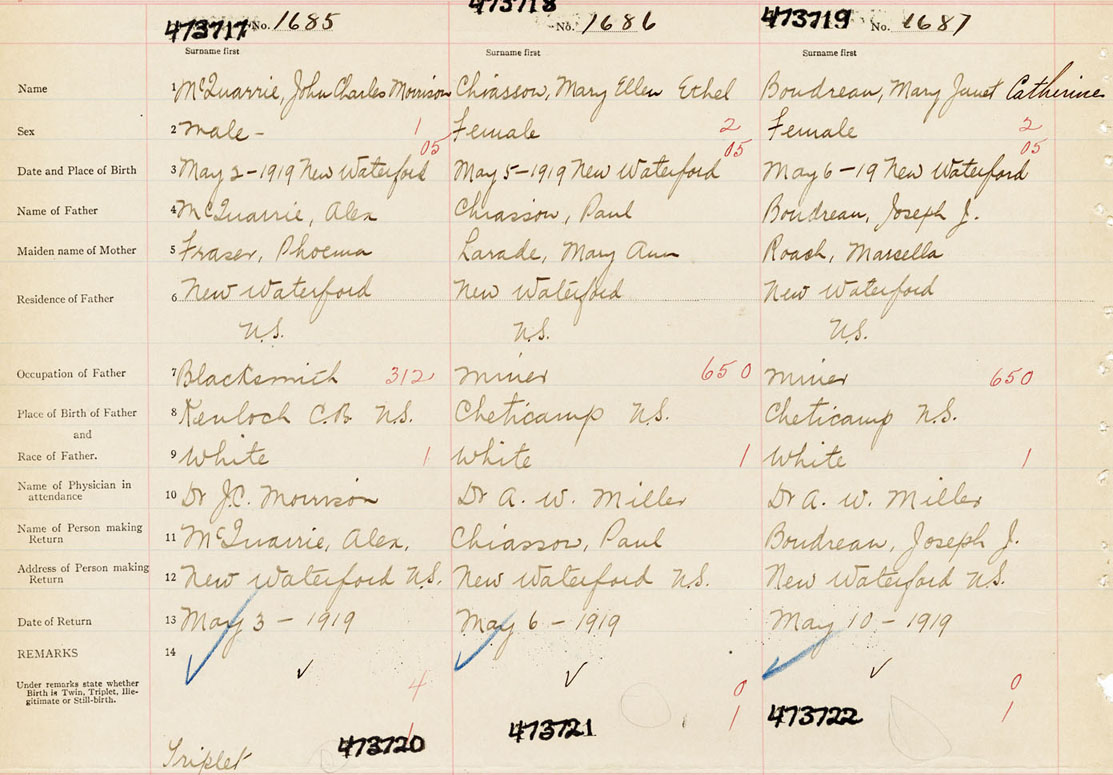 473717 No. 1685 473718 No. 1686 473719 No. 1687
Surname first Surname first Surname first
Name 1 McQuarrie, John Charles Morrison Chiasson, Mary Ellen Ethel Boudreau, Mary Janet Catherine
Sex 2 Male - 1 Female 2 Female 2
05 05 05
Date and Place of Birth 3 May 2-1919 New Waterford May 5-1919 New Waterford May 6-19 New Waterford
Name of Father 4 McQuarrie, Alex Chiasson, Paul Boudreau, Joseph J.
Maiden name of Mother 5 Fraser, Phoema Larade, Mary Ann Roach, Marsella
Residence of Father 6 New Waterford New Waterford New Waterford
N.S. N.S. N.S.
Occupation of Father 7 Blacksmith 312 Miner 650 Miner 650
Place of Birth of Father 8 Kenloch C.B N.S. Cheticamp N.S. Cheticamp N.S.
and
Race of Father. 9 White 1 White 1 White 1
Name of Physician in
attendance 10 Dr J.C. Morrison Dr A. W. Miller Dr A. W. Miller
Name of Person making
Return 11 McQuarrie, Alex, Chiasson, Paul Boudreau, Joseph J.
Address of Person making
Return 12 New Waterford N.S. New Waterford N.S. New Waterford N.S.
Date of Return 13 May 3 - 1919 May 6 - 1919 May 10 - 1919
REMARKS 14
Under remarks state whether
Birth is Twin, Triplet, Ille-
gitimate or Still-birth. 4 0 0
1 1 1
473720 473721 473722
Triplet